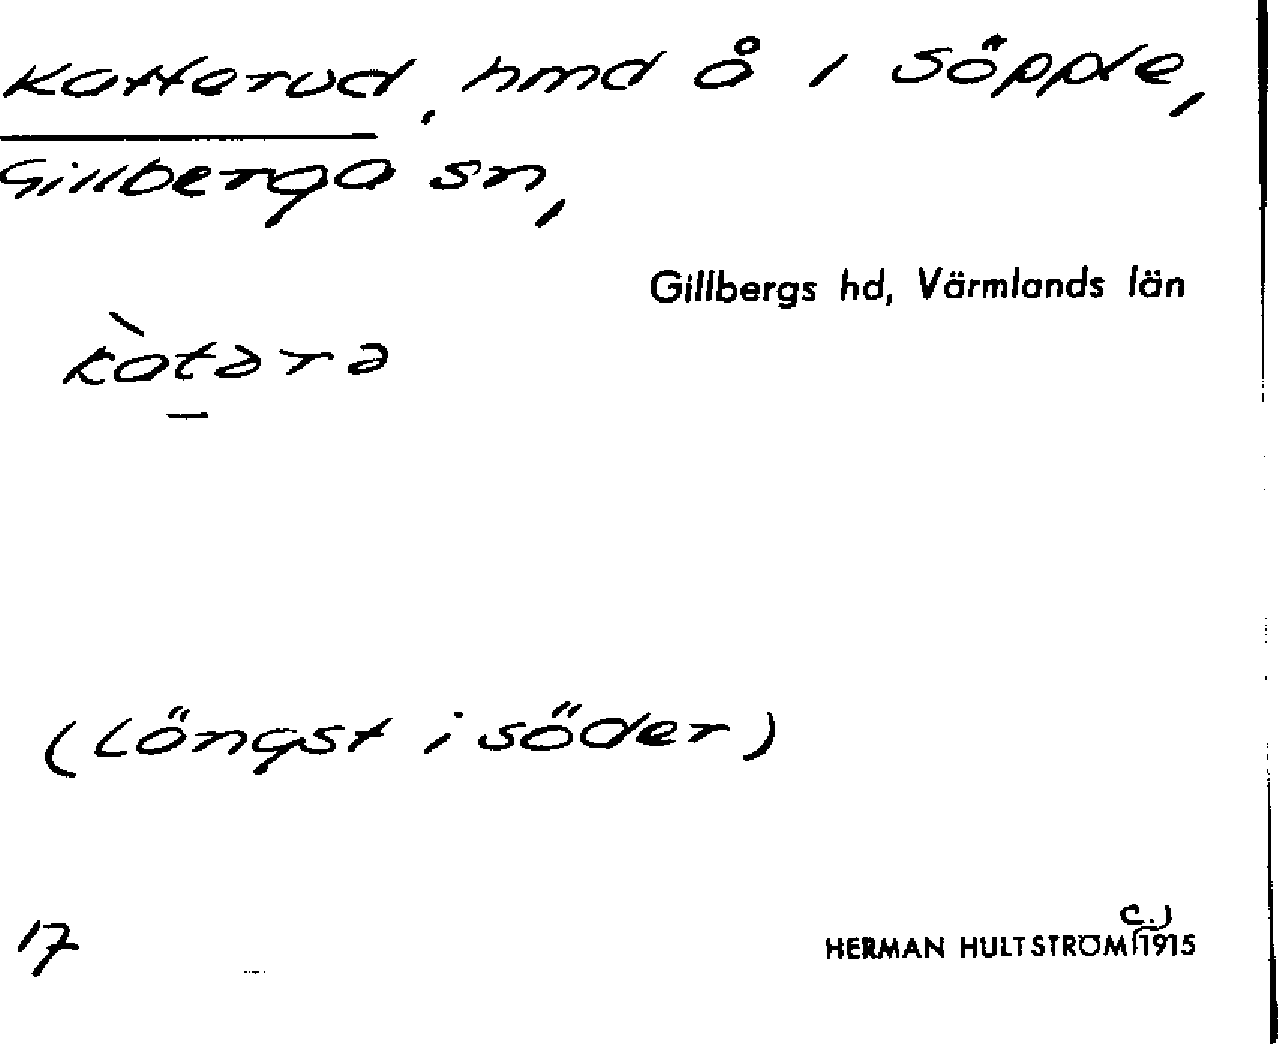 Katterud, hmd å i Söpple,
Gillberga sn,
Gillbergs hd, Värmlands län
kàtərə
(Längst i söder)
17
c.)
HERMAN HULTSTRÖM 1915